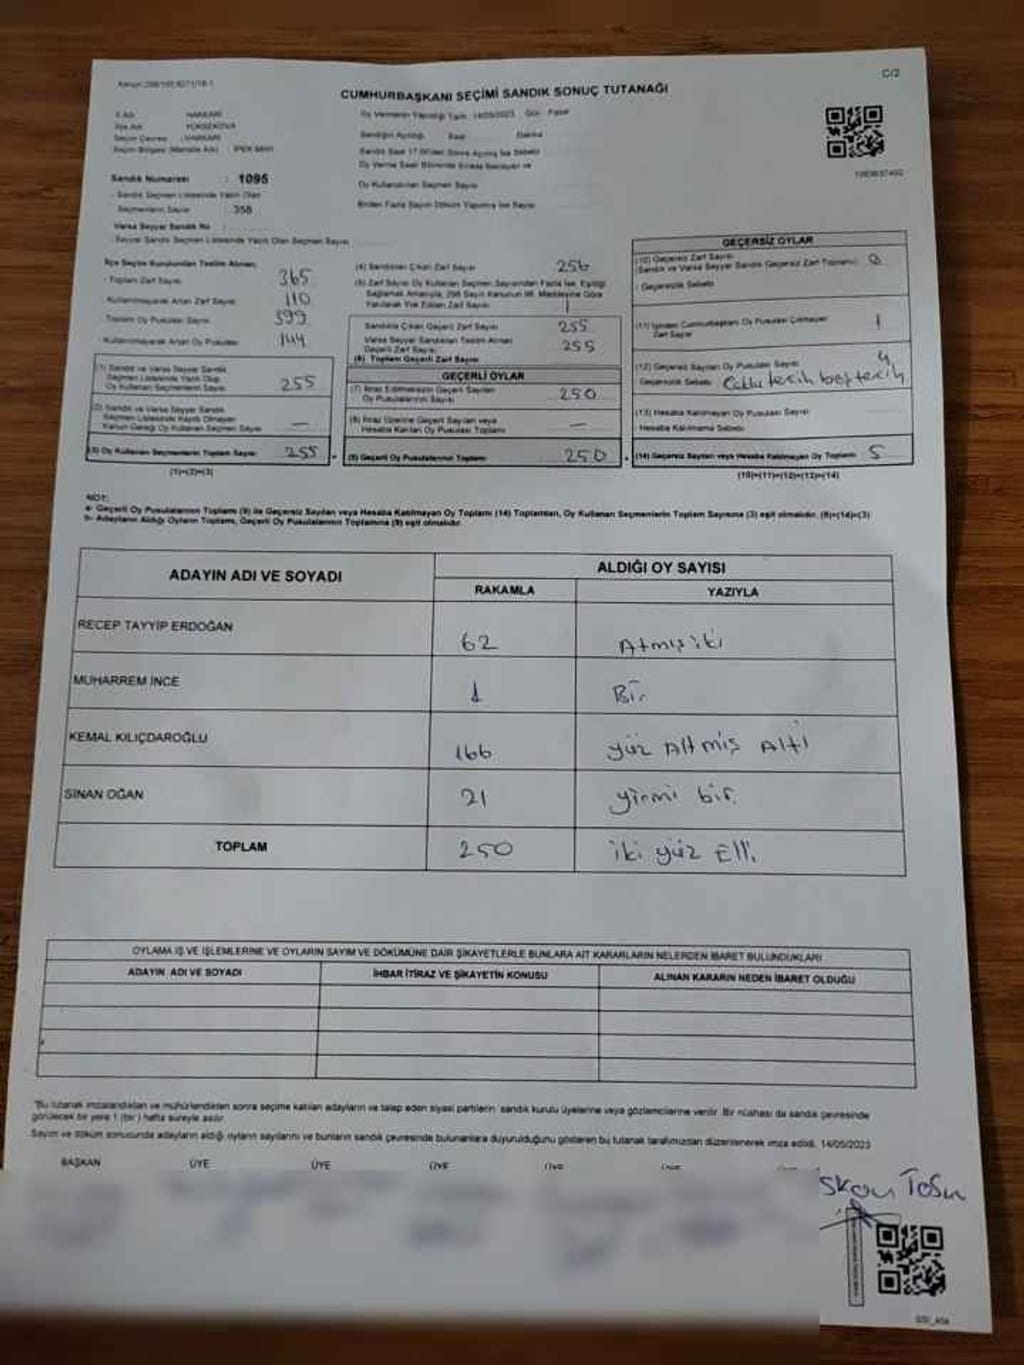 C/2
CUMHURBAŞKANI SEÇİMİ SANDIK SONUÇ TUTANAĞI
İl Adı HAKKARİ
İlçe Adı YÜKSEKOVA
Seçim Çevresi : HAKKARİ
Oy Vermenin Yapıldığı Tarih 14/05/2023 Gün Pazar
Sandığın Açıldığı Saat Dakika
Sandık Numarası : 1095
Sandık Seçmen Listesinde Yazılı Olan
Seçmenlerin Sayısı 358
Oy Kullanan Seçmen Sayısı
Birden Fazla Sayım Döküm Yapılmış İse Sayısı
Varsa Seyyar Sandık No
Seyyar Sandık Seçmen Listesinde Yazılı Olan Seçmen Sayısı
İlçe Seçim Kurulundan Teslim Alınan;
Toplam Zarf Sayısı 365
Kullanılmayarak Artan Zarf Sayısı 110
Toplam Oy Pusulası Sayısı 399
Kullanılmayarak Artan Oy Pusulası 144
(1) Sandık ve Varsa Seyyar Sandık
Seçmen Listesinde Yazılı Olup
Oy Kullanan Seçmenlerin Sayısı 255
(2) Sandık ve Varsa Seyyar Sandık
Seçmen Listesinde Kayıtlı Olmayan
Kanun Gereği Oy Kullanan Seçmen Sayısı —
(3) Oy Kullanan Seçmenlerin Toplam Sayısı 255
(1)+(2)=(3)
(4) Sandıktan Çıkan Zarf Sayısı 256
(5) Zarf Sayısı Oy Kullanan Seçmen Sayısından Fazla İse, Eşitliği
Sağlamak Amacıyla, 298 Sayılı Kanunun 98. Maddesine Göre
Yakılarak Yok Edilen Zarf Sayısı 1
Sandıkta Çıkan Geçerli Zarf Sayısı 255
Varsa Seyyar Sandıktan Teslim Alınan
Geçerli Zarf Sayısı 255
(6) Toplam Geçerli Zarf Sayısı
GEÇERLİ OYLAR
(7) İtiraz Edilmeksizin Geçerli Sayılan
Oy Pusulalarının Sayısı 250
(8) İtiraz Üzerine Geçerli Sayılan veya
Hesaba Katılan Oy Pusulası Toplamı —
(9) Geçerli Oy Pusulalarının Toplamı 250
GEÇERSİZ OYLAR
(10) Geçersiz Zarf Sayısı
(Sandık ve Varsa Seyyar Sandık Geçersiz Zarf Toplamı) 0
Geçersizlik Sebebi
(11) İçinden Cumhurbaşkanı Oy Pusulası Çıkmayan
Zarf Sayısı 1
(12) Geçersiz Sayılan Oy Pusulası Sayısı 4
Geçersizlik Sebebi
(13) Hesaba Katılmayan Oy Pusulası Sayısı
Hesaba Katılmama Sebebi
(14) Geçersiz Sayılan veya Hesaba Katılmayan Oy Toplamı 5
(10)+(11)+(12)+(13)=(14)
NOT:
a- Geçerli Oy Pusulalarının Toplamı (9) ile Geçersiz Sayılan veya Hesaba Katılmayan Oy Toplamı (14) Toplamları, Oy Kullanan Seçmenlerin Toplam Sayısına (3) eşit olmalıdır. (9)+(14)=(3)
b- Adayların Aldığı Oyların Toplamı, Geçerli Oy Pusulalarının Toplamına (9) eşit olmalıdır.
ADAYIN ADI VE SOYADI ALDIĞI OY SAYISI
RAKAMLA YAZIYLA
RECEP TAYYİP ERDOĞAN 62 Atmış iki
MUHARREM İNCE 1 Bir
KEMAL KILIÇDAROĞLU 166 yüz Altmış Altı
SİNAN OĞAN 21 yirmi bir
TOPLAM 250 iki yüz Elli
OYLAMA İŞ VE İŞLEMLERİNE VE OYLARIN SAYIM VE DÖKÜMÜNE DAİR ŞİKAYETLERLE BUNLARA AİT KARARLARIN NELERDEN İBARET BULUNDUKLARI
ADAYIN ADI VE SOYADI İHBAR İTİRAZ VE ŞİKAYETİN KONUSU ALINAN KARARIN NEDEN İBARET OLDUĞU
"Bu tutanak imzalandıktan ve mühürlendikten sonra seçime katılan adayların ve talep eden siyasi partilerin sandık kurulu üyelerine veya gözlemcilerine verilir. Bir nüshası da sandık çevresinde
görülecek bir yere 1 (bir) hafta süreyle asılır.
Sayım ve döküm sonucunda adayların aldığı oyların sayılarını ve bunların sandık çevresinde bulunanlara duyurulduğunu gösteren bu tutanak tarafımızdan düzenlenerek imza edildi. 14/05/2023
BAŞKAN ÜYE ÜYE ÜYE ÜYE